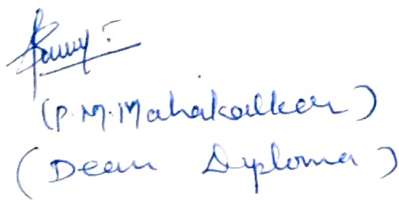 (P.M.Mahakalkar)
(Dean Diploma)